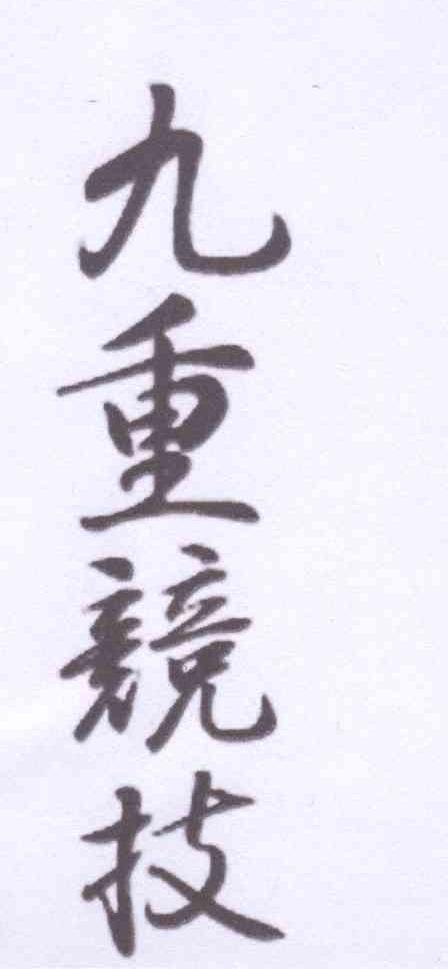 九重競技